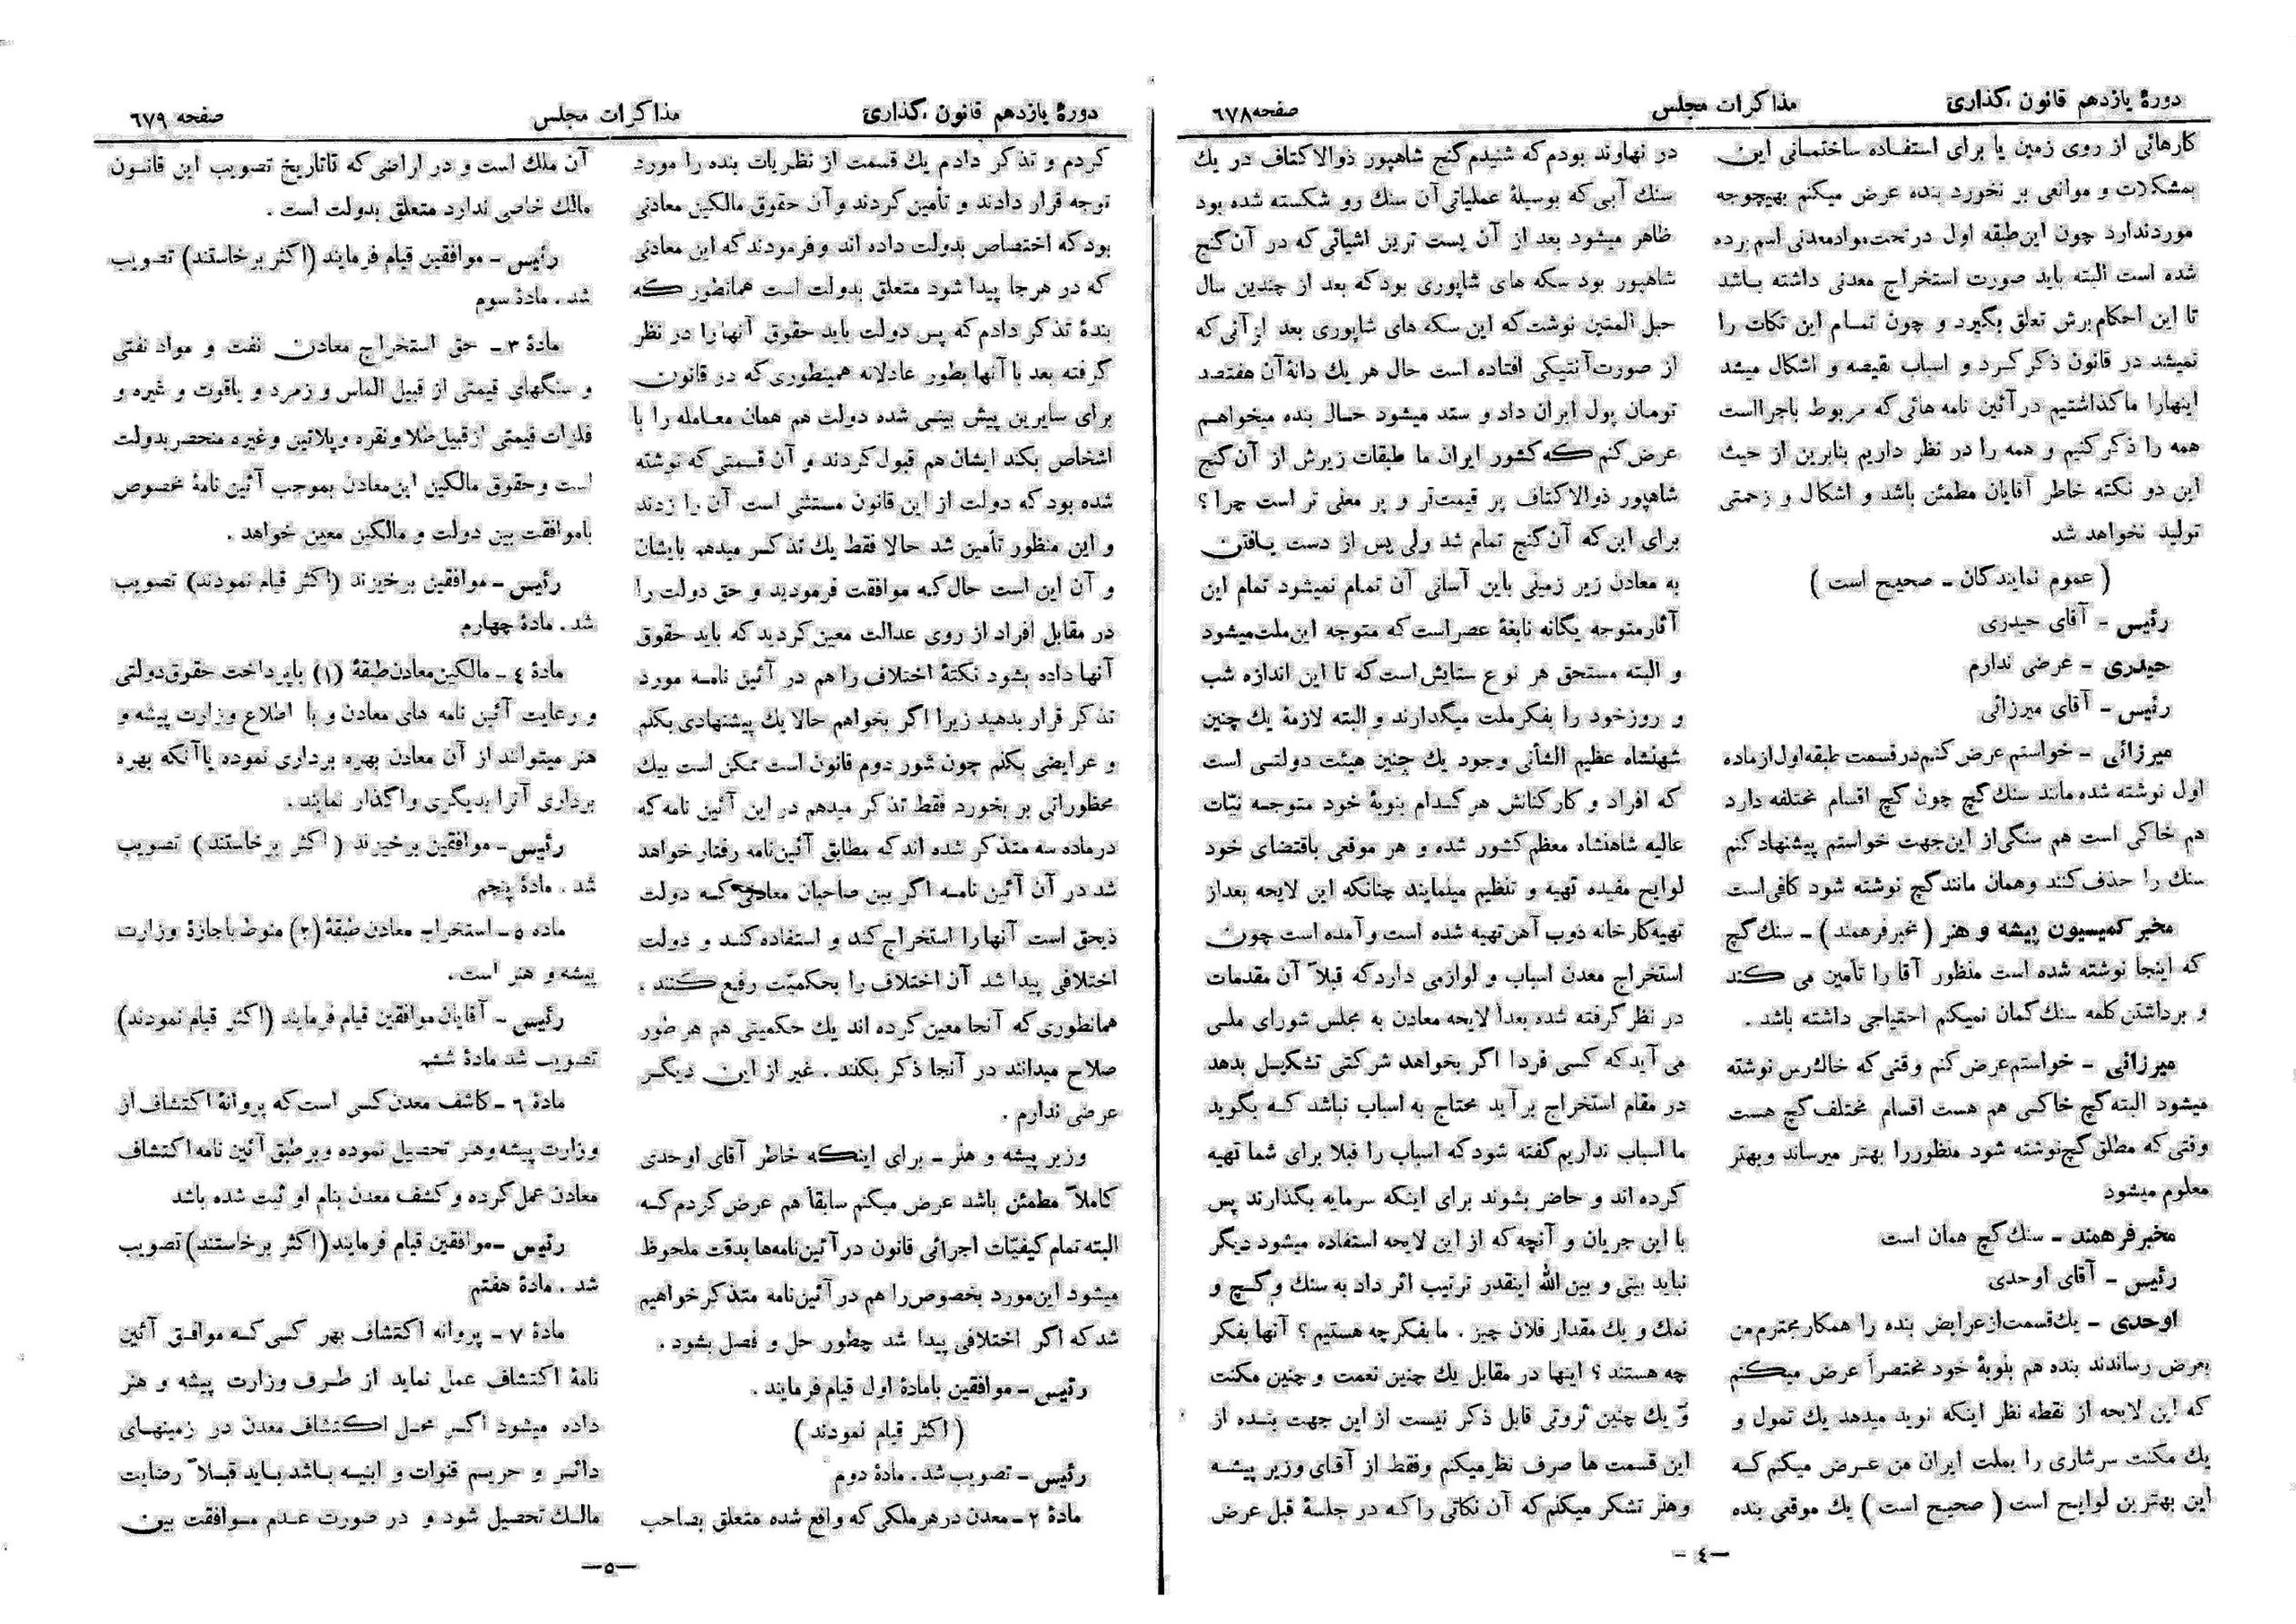 دورهٔ یازدهم قانون گذاری
مذاکرات مجلس
صفحه ٦٧٨
کارهائی از روی زمین یا برای استفاده ساختمانی این
بمشکلات و موانعی بر نخورد بنده عرض میکنم بهیچوجه
موردندارد چون این طبقه اول در تحت موادمعدنی اسم برده
شده است البته باید صورت استخراج معدنی داشته باشد
تا این احکام برش تعلق بگیرد و چون تمام این نکات را
نمیشد در قانون ذکر کرد و اسباب نقیصه و اشکال میشد
اینهارا ما گذاشتیم در آئین نامه هائی که مربوط باجرااست
همه را ذکر کنیم و همه را در نظر داریم بنابرین از حیث
این دو نکته خاطر آقایان مطمئن باشد و اشکال و زحمتی
تولید نخواهد شد
( عموم نمایندگان ـ صحیح است )
رئیس ـ آقای حیدری
حیدری ـ عرضی ندارم
رئیس ـ آقای میرزائی
میرزائی ـ خواستم عرض کنم در قسمت طبقه اول از ماده
اول نوشته شده مانند سنك گچ چون گچ اقسام مختلفه دارد
هم خاکی است هم سنگی از این جهت خواستم پیشنهاد کنم
سنك را حذف کنند وهمان مانند گچ نوشته شود کافی است
مخبر کمیسیون پیشه و هنر ( مخبر فرهمند ) ـ سنك گچ
که اینجا نوشته شده است منظور آقا را تأمین می کند
و برداشتن کلمه سنك گمان نمیکنم احتیاجی داشته باشد .
میرزائی ـ خواستم عرض کنم وقتی که خاك رس نوشته
میشود البته گچ خاکی هم هست اقسام مختلف گچ هست
وقتی که مطلق گچ نوشته شود منظوررا بهتر میرساند وبهتر
معلوم میشود
مخبر فرهمند ـ سنك گچ همان است
رئیس ـ آقای اوحدی
اوحدی ـ یك قسمت از عرایض بنده را همکار محترم من
بعرض رساندند بنده هم بنوبهٔ خود مختصراً عرض میکنم
که این لایحه از نقطه نظر اینکه نوید میدهد یك تمول و
یك مکنت سرشاری را بملت ایران من عرض میکنم که
این بهترین لوایح است ( صحیح است ) یك موقعی بنده
در نهاوند بودم که شنیدم گنج شاهپور ذوالاکتاف در یك
سنك آبی که بوسیلهٔ عملیاتی آن سنك رو شکسته شده بود
ظاهر میشود بعد از آن پست ترین اشیائی که در آن گنج
شاهپور بود سکه های شاپوری بود که بعد از چندین سال
حبل المتین نوشت که این سکه های شاپوری بعد از آنی که
از صورت آنتیکی افتاده است حال هر یك دانهٔ آن هفتصد
تومان پول ایران داد و ستد میشود حال بنده میخواهم
عرض کنم که کشور ایران ما طبقات زیرش از آن گنج
شاهپور ذوالاکتاف پر قیمت‌تر و پر معنی تر است چرا ؟
برای این که آن گنج تمام شد ولی پس از دست یافتن
به معادن زیر زمینی باین آسانی آن تمام نمیشود تمام این
آثار متوجه یگانه نابغهٔ عصر است که متوجه این ملت میشود
و البته مستحق هر نوع ستایش است که تا این اندازه شب
و روز خود را بفکر ملت میگذارند و البته لازمهٔ یك چنین
شهنشاه عظیم الشأنی وجود یك چنین هیئت دولتی است
که افراد و کارکنانش هر کدام بنوبهٔ خود متوجه نیّات
عالیه شاهنشاه معظم کشور شده و هر موقعی باقتضای خود
لوایح مفیده تهیه و تنظیم مینمایند چنانکه این لایحه بعداز
تهیه کارخانه ذوب آهن تهیه شده است و آمده است چون
استخراج معدن اسباب و لوازمی دارد که قبلاً آن مقدمات
در نظر گرفته شده بعداً لایحه معادن به مجلس شورای ملی
می آید که کسی فردا اگر بخواهد شرکتی تشکیل بدهد
در مقام استخراج بر آید محتاج به اسباب نباشد که بگوید
ما اسباب نداریم گفته شود که اسباب را قبلا برای شما تهیه
کرده اند و حاضر بشوند برای اینکه سرمایه بگذارند پس
با این جریان و آنچه که از این لایحه استفاده میشود دیگر
نباید بینی و بین الله اینقدر ترتیب اثر داد به سنك و گچ و
نمك و یك مقدار فلان چیز . ما بفکر چه هستیم ؟ آنها بفکر
چه هستند ؟ اینها در مقابل یك چنین نعمت و چنین مکنت
و یك چنین ثروتی قابل ذکر نیست از این جهت بنده از
این قسمت ها صرف نظر میکنم وفقط از آقای وزیر پیشه
وهنر تشکر میکنم که آن نکاتی را که در جلسهٔ قبل عرض
ـ٤ـ
دورهٔ یازدهم قانون گذاری
مذاکرات مجلس
صفحه ٦٧٩
کردم و تذکر دادم یك قسمت از نظریات بنده را مورد
توجه قرار دادند و تأمین کردند و آن حقوق مالکین معادنی
بود که اختصاص بدولت داده اند و فرمودند که این معادنی
که در هرجا پیدا شود متعلق بدولت است همانطور که
بندهٔ تذکر دادم که پس دولت باید حقوق آنها را در نظر
گرفته بعد با آنها بطور عادلانه همینطوری که در قانون
برای سایرین پیش بینی شده دولت هم همان معامله را با
اشخاص بکند ایشان هم قبول کردند و آن قسمتی که نوشته
شده بود که دولت از این قانون مستثنی است آن را زدند
و این منظور تأمین شد حالا فقط یك تذکر میدهم بایشان
و آن این است حال که موافقت فرمودید و حق دولت را
در مقابل افراد از روی عدالت معین کردید که باید حقوق
آنها داده بشود نکتهٔ اختلاف را هم در آئین نامه مورد
تذکر قرار بدهید زیرا اگر بخواهم حالا یك پیشنهادی بکنم
و عرایضی بکنم چون شور دوم قانون است ممکن است بیك
محظوراتی بر بخورد فقط تذکر میدهم در این آئین نامه که
درماده سه متذکر شده اند که مطابق آئین نامه رفتار خواهد
شد در آن آئین نامه اگر بین صاحبان معادنی که دولت
ذیحق است آنها را استخراج کند و استفاده کند و دولت
اختلافی پیدا شد آن اختلاف را بحکمیّت رفع کنند .
همانطوری که آنجا معین کرده اند یك حکمیتی هم هر طور
صلاح میدانند در آنجا ذکر بکنند . غیر از این دیگر
عرضی ندارم .
وزیر پیشه و هنر ـ برای اینکه خاطر آقای اوحدی
کاملاً مطمئن باشد عرض میکنم سابقاً هم عرض کردم که
البته تمام کیفیّات اجرائی قانون در آئین نامه‌ها بدقت ملحوظ
میشود این مورد بخصوص را هم در آئین نامه متذکر خواهیم
شد که اگر اختلافی پیدا شد چطور حل و فصل بشود .
رئیس ـ موافقین با مادهٔ اول قیام فرمایند .
( اکثر قیام نمودند )
رئیس ـ تصویب شد . مادهٔ دوم
مادهٔ ۲ ـ معدن در هر ملکی که واقع شده متعلق بصاحب
آن ملك است و در اراضی که تاتاریخ تصویب این قانون
مالك خاصی ندارد متعلق بدولت است .
رئیس ـ موافقین قیام فرمایند (اکثر برخاستند) تصویب
شد . مادهٔ سوم
مادهٔ ۳ ـ حق استخراج معادن نفت و مواد نفتی
و سنگهای قیمتی از قبیل الماس و زمرد و یاقوت و غیره و
فلزات قیمتی از قبیل طلا و نقره و پلاتین و غیره منحصر بدولت
است و حقوق مالکین این معادن بموجب آئین نامهٔ مخصوص
باموافقت بین دولت و مالکین معین خواهد .
رئیس ـ موافقین برخیزند (اکثر قیام نمودند) تصویب
شد . مادهٔ چهارم
مادهٔ ٤ ـ مالکین معادن طبقهٔ (۱) باپرداخت حقوق دولتی
و رعایت آئین نامه های معادن و با اطلاع وزارت پیشه و
هنر میتوانند از آن معادن بهره برداری نموده یا آنکه بهره
برداری آنرا بدیگری واگذار نمایند .
رئیس ـ موافقین برخیزند ( اکثر برخاستند ) تصویب
شد . مادهٔ پنجم
ماده ٥ ـ استخراج معادن طبقهٔ (۲) منوط باجازهٔ وزارت
پیشه و هنر است .
رئیس ـ آقایان موافقین قیام فرمایند (اکثر قیام نمودند)
تصویب شد مادهٔ ششم
مادهٔ ٦ ـ کاشف معدن کسی است که پروانهٔ اکتشاف از
وزارت پیشه وهنر تحصیل نموده و بر طبق آئین نامه اکتشاف
معادن عمل کرده و کشف معدن بنام او ثبت شده باشد
رئیس ـ موافقین قیام فرمایند (اکثر برخاستند) تصویب
شد . مادهٔ هفتم
مادهٔ ۷ ـ پروانه اکتشاف بهر کسی که موافق آئین
نامهٔ اکتشاف عمل نماید از طرف وزارت پیشه و هنر
داده میشود اگر محل اکتشاف معدن در زمینهای
دائر و حریم قنوات و ابنیه باشد باید قبلاً رضایت
مالك تحصیل شود و در صورت عدم موافقت بین
ـ٥ـ